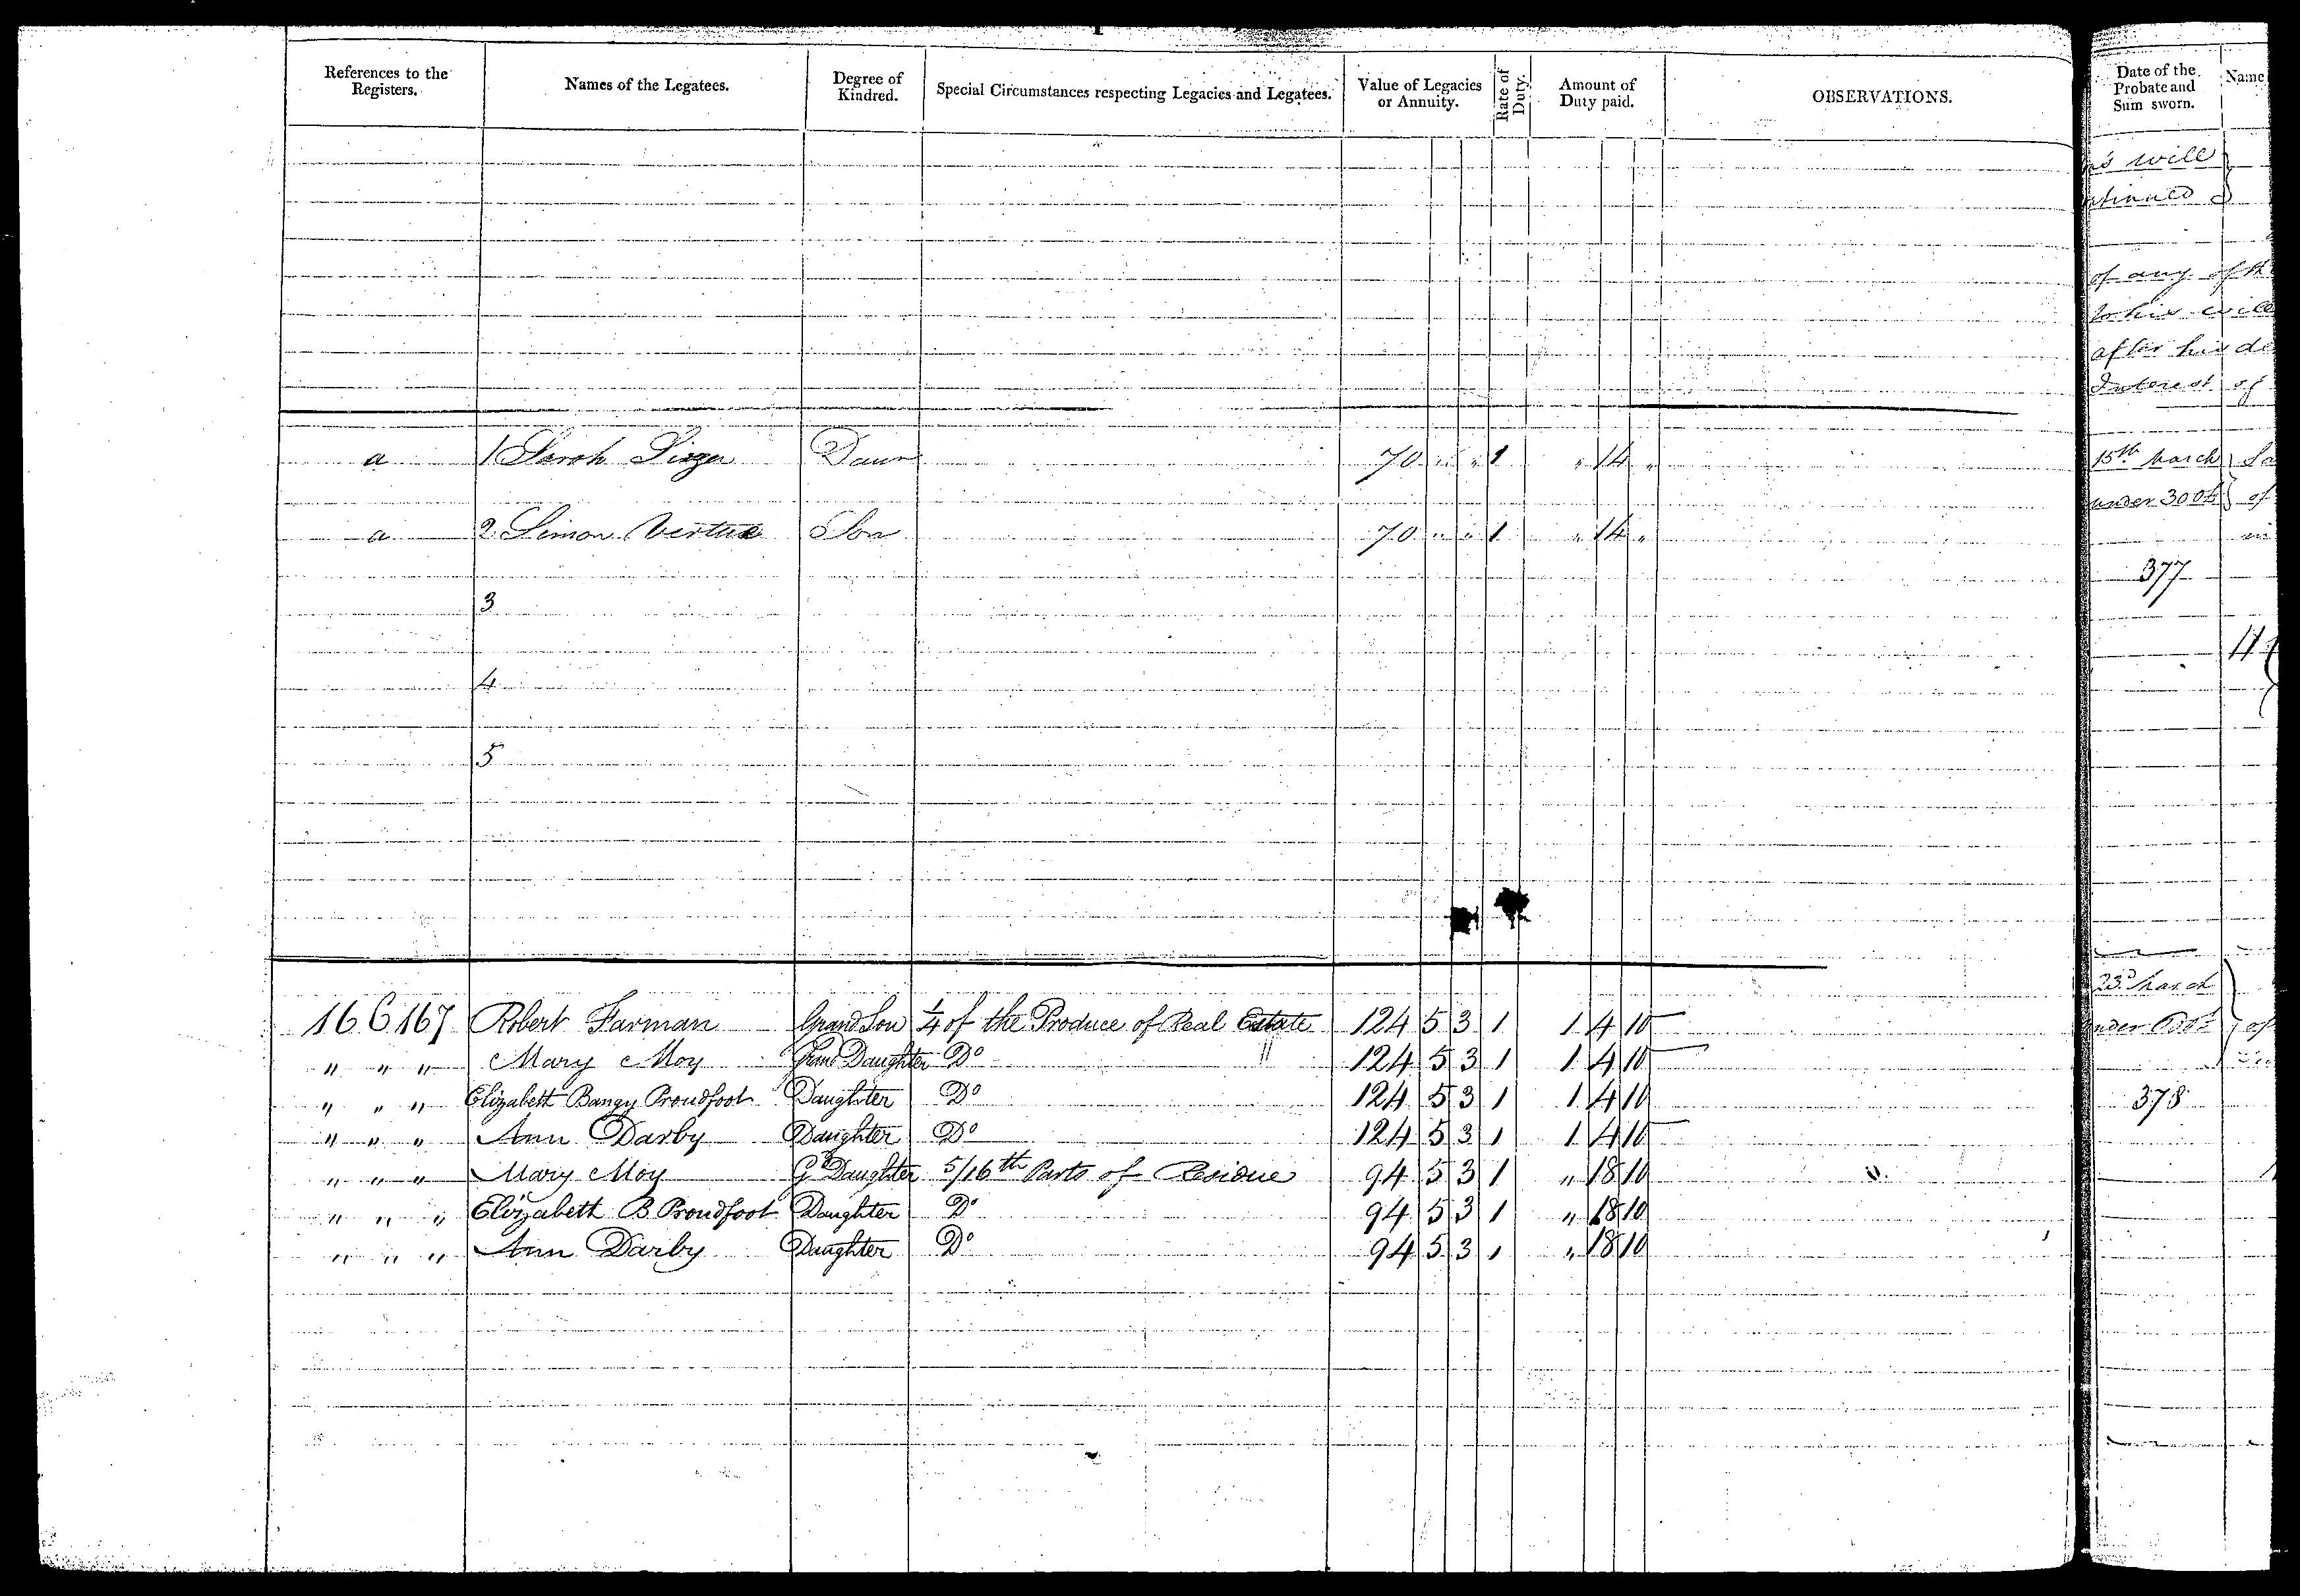 References to the Registers. Names of the Legatees. Degree of Kindred. Special Circumstances respecting Legacies and Legatees. Value of Legacies or Annuity. Rate of Duty. Amount of Duty paid. OBSERVATIONS.
a 1 Sarah Daur 70 " " 1 " 14 "
a 2 Simon Vertue Son 70 " " 1 " 14 "
3
4
5
16 C 167 Robert Farman Grand Son 1/4 of the Produce of Real Estate 124 5 3 1 1 4 10
" " " Mary Moy Grand Daughter Do 124 5 3 1 1 4 10
" " " Elizabeth Bangy Proudfoot Daughter Do 124 5 3 1 1 4 10
" " " Ann Darby Daughter Do 124 5 3 1 1 4 10
" " " Mary Moy Gd Daughter 5/16th Parts of Residue 94 5 3 1 " 18 10
" " " Elizabeth B Proudfoot Daughter Do 94 5 3 1 " 18 10
" " " Ann Darby Daughter Do 94 5 3 1 " 18 10
Date of the Probate and Sum sworn. Name
will
of any of th
to his will
after his de
Interest of
15th March
under 300£ of
377
23d March
of
378